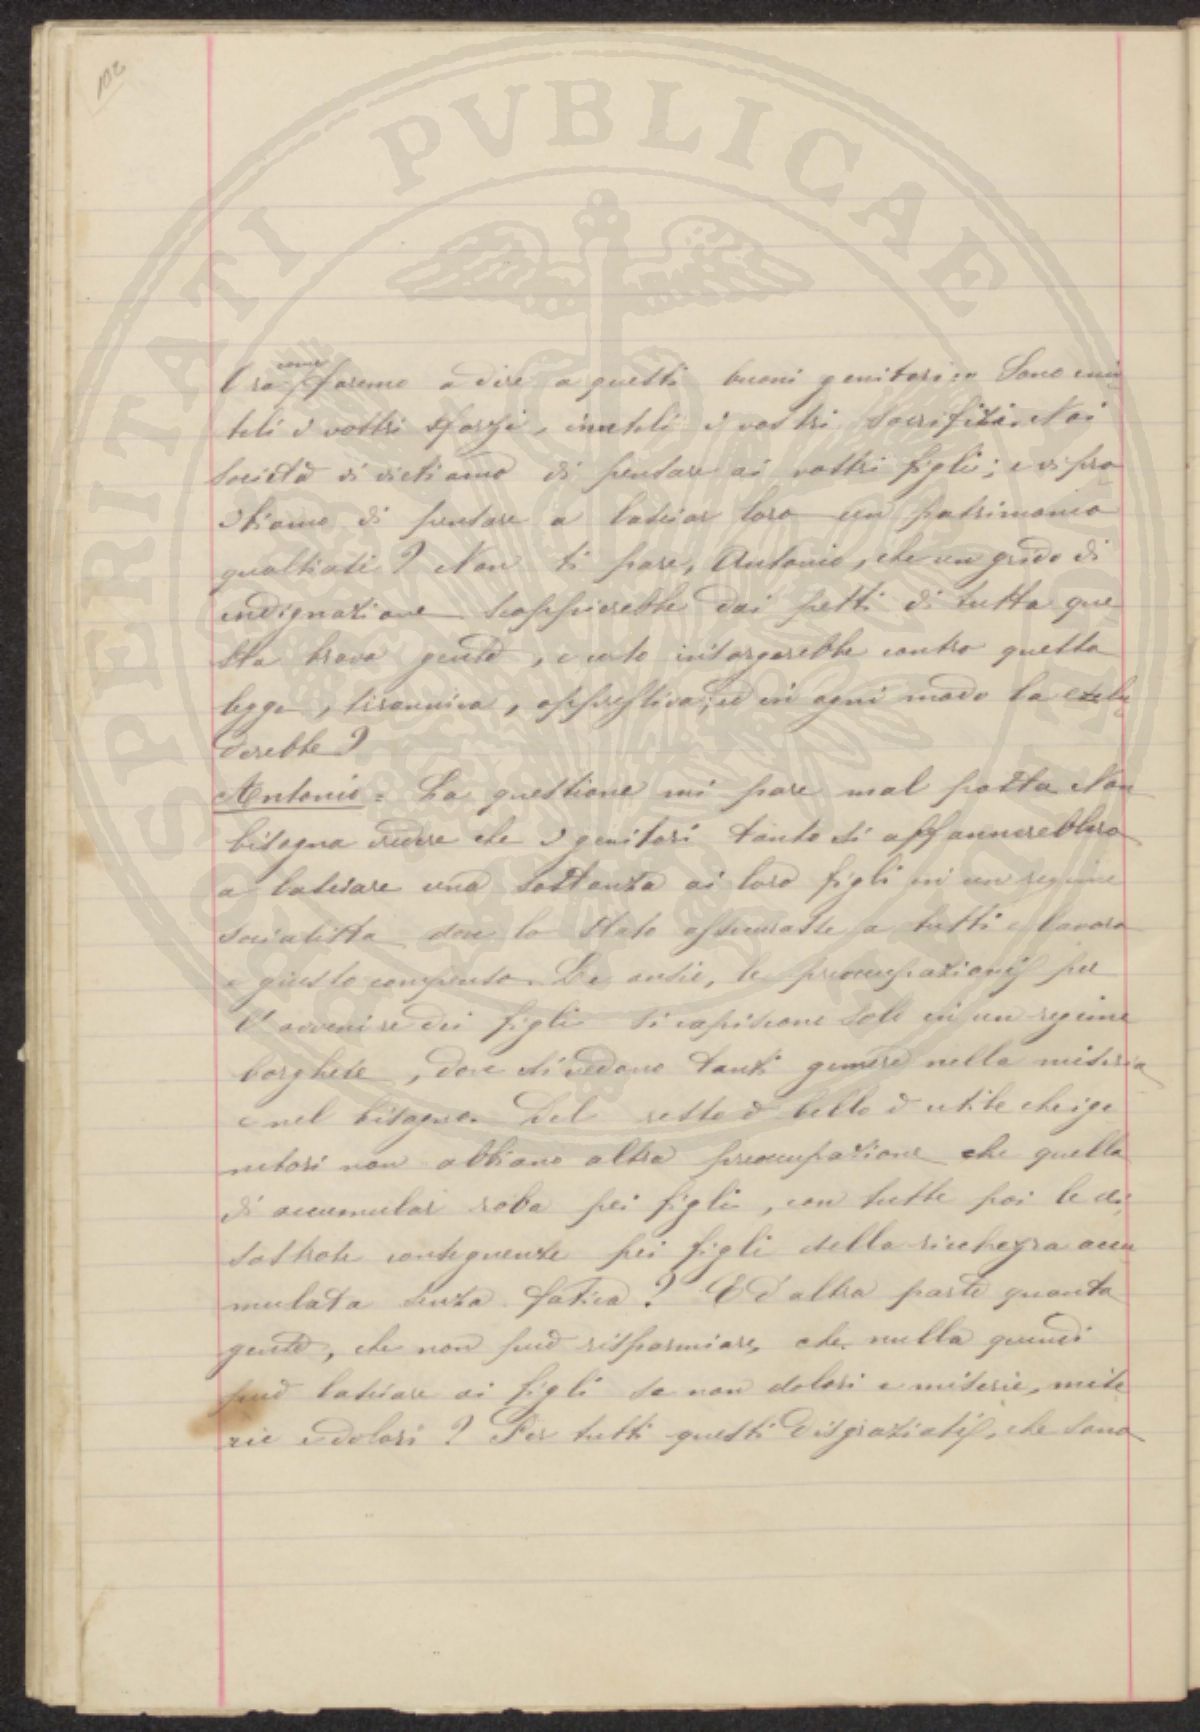 102
Ora come faremo a dire a questi buoni genitori: Sono inu
tili i vostri sforzi, inutili i vostri sacrifizi. Noi
società vi vietiamo di pensare ai vostri figli; e vi proi
biamo di pensare a lasciar loro un patrimonio
qualsiasi? Non ti pare, Antonio, che un grido di
indignazione scoppierebbe dai petti di tutta que
sta brava gente, e certo insorgerebbe contro questa
legge, tirannica, oppressiva; ed in ogni modo la elu
derebbe?
Antonio = La questione mi pare mal posta. Non
bisogna credere che i genitori tanto si affannerebbero
a lasciare una sostanza ai loro figli in un regime
socialista dove lo Stato assicurasse a tutti e lavoro
e giusto compenso. Le ansie, le preoccupazioni per
l'avvenire dei figli si capiscono solo in un regime
borghese, dove si vedono tanti gemere nella miseria
e nel bisogno. Del resto è bello è utile che i ge
nitori non abbiano altra preoccupazione che quella
di accumular roba pei figli, con tutte poi le di
sastrose conseguenze pei figli della ricchezza accu
mulata senza fatica? E d'altra parte quanta
gente, che non può risparmiare, che nulla quindi
può lasciare ai figli se non dolori e miserie, mise
rie e dolori? Per tutti questi disgraziati, che sono
PROSPERITATI PVBLICAE